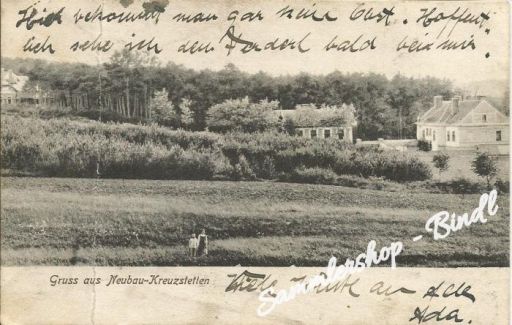 Hier bekommt man gar keine Obst. Hoffent-
lich sehe ich den Ferderl bald bei mir."
Gruss aus Neubau-Kreuzstetten
Viele an Alle
Ada.
Sammlershop - Bindl